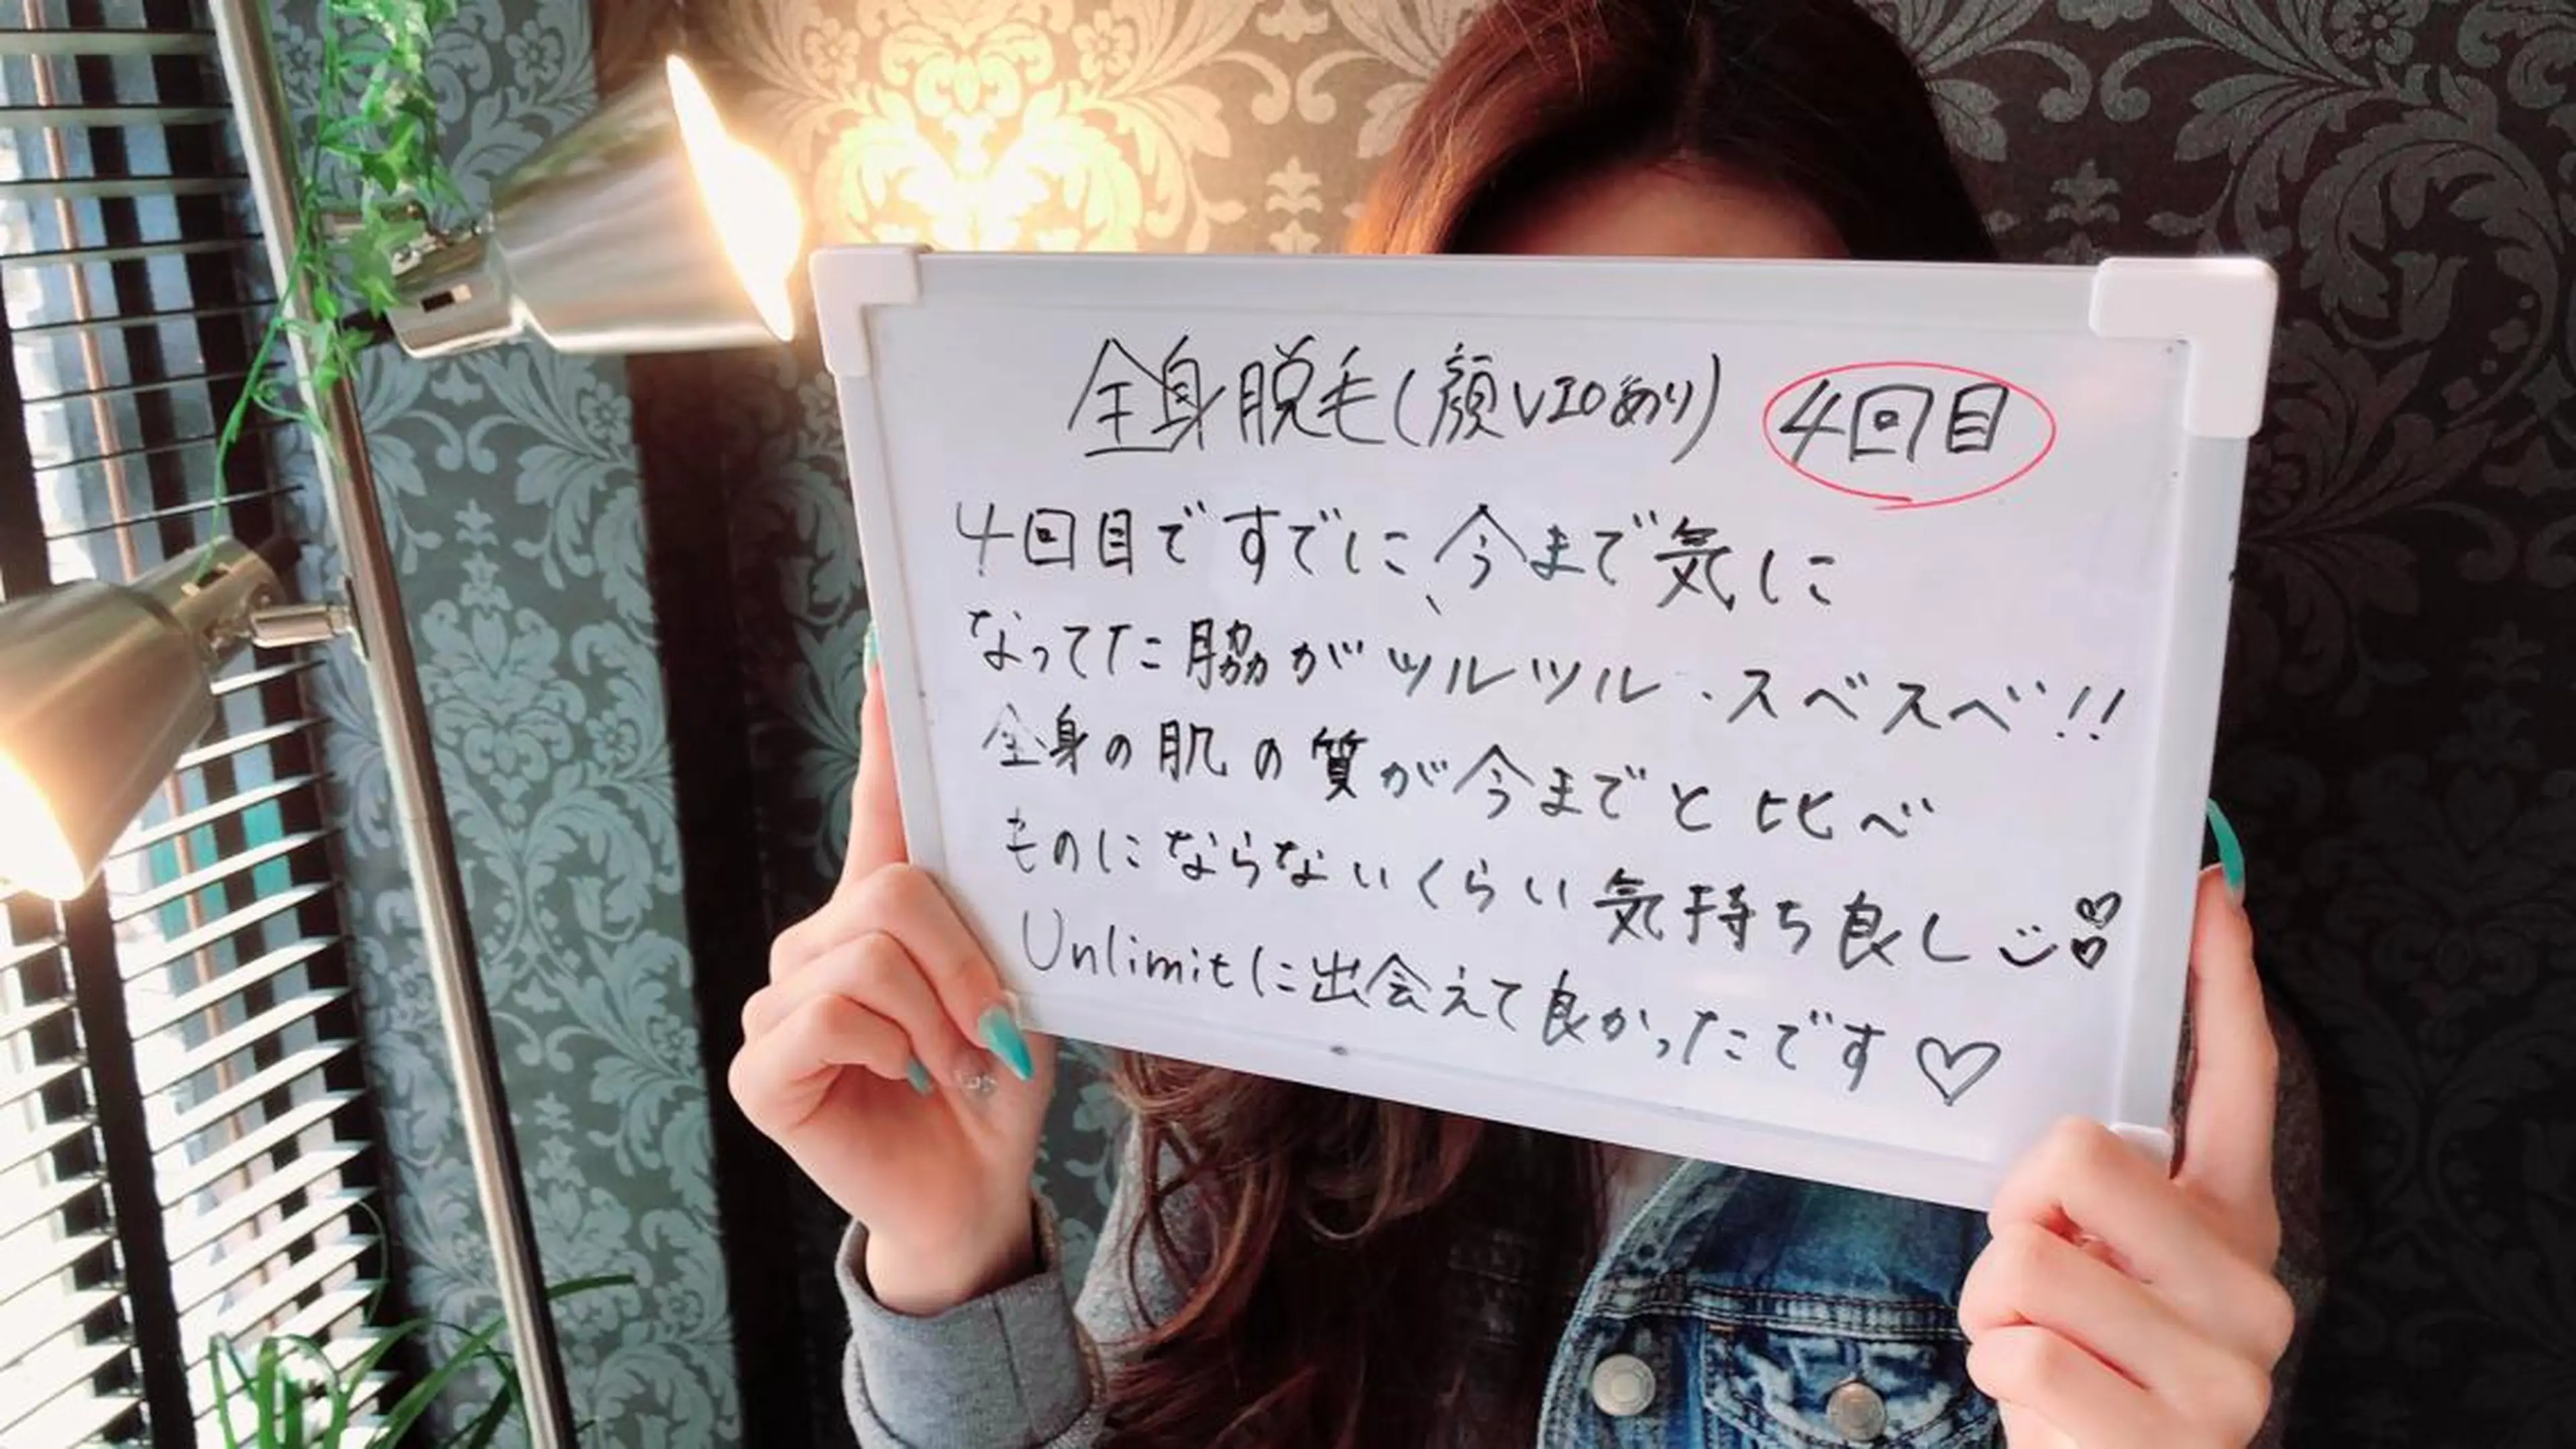 全身脱毛(顔VIOあり) 4回目
4回目ですでに、今まで気に
なってた脇がツルツル・スベスベ!!
全身の肌の質が今までと比べ
ものにならないくらい気持ち良し
Unlimitに出会えて良かったです♡